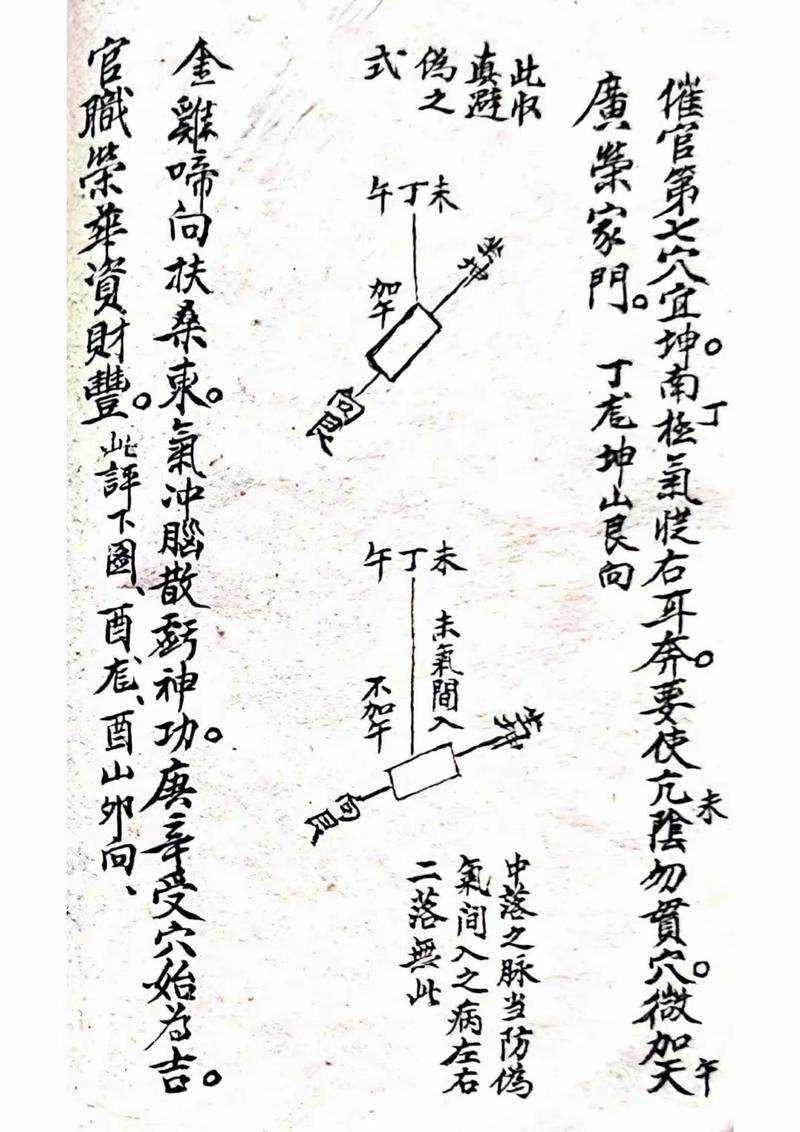 催官第七穴宜坤。南極氣從右耳奔。要使亢陰勿貫穴。微加天
丁
未
午
廣榮家門。 丁尨坤山艮向
此收
真避
偽之
式
午丁未
坐坤
加午
向艮
午丁未
未氣間入
不加午
坐坤
向艮
中落之脉当防偽
氣间入之病左右
二落無此
金雞啼向扶桑東。氣冲腦散虧神功。庚辛受穴始為吉。
官職榮華資財豐。此評下圖、酉尨、酉山卯向、